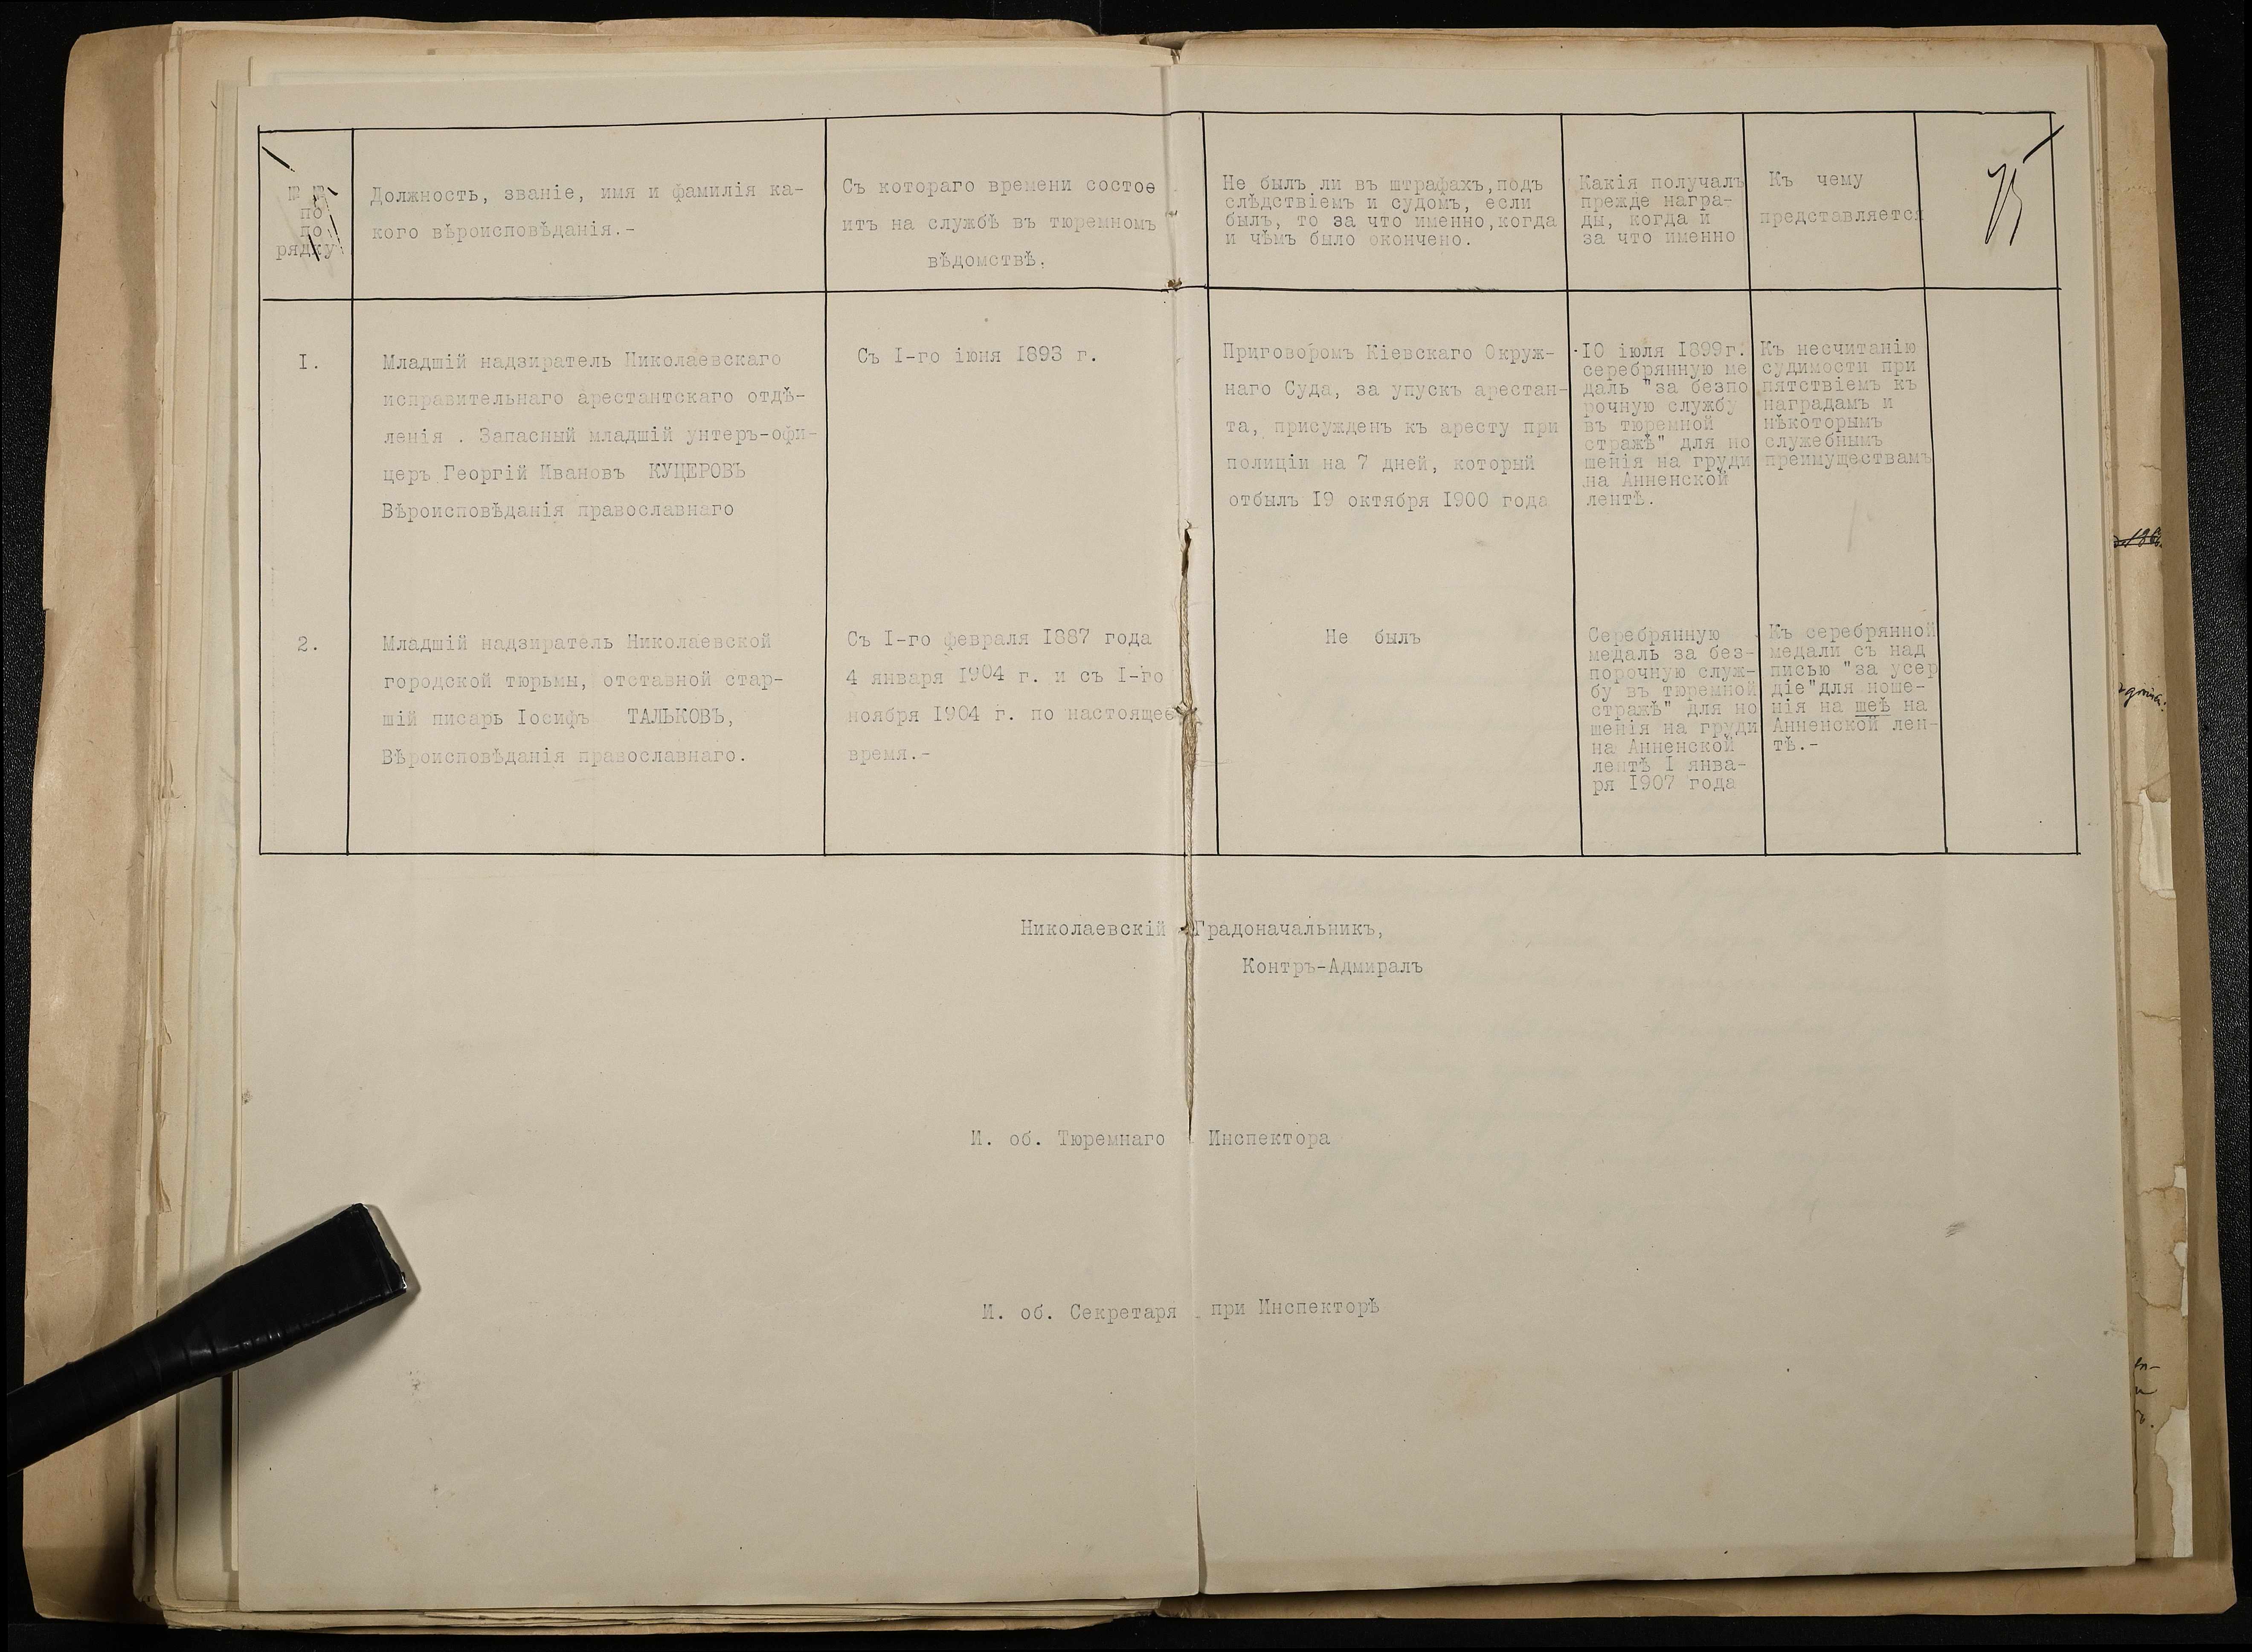 по
по
рядку
Должность, званіе, имя и фамилія ка-
кого вѣроисповѣданія.-
Съ котораго времени состое
итъ на службѣ въ тюремномъ
вѣдомствѣ.
Не былъ ли въ штрафахъ,подъ
слѣдствіемъ и судомъ, если
былъ, то за что именно,когда
и чѣмъ было окончено.
Какія получалъ
прежде награ-
ды, когда и
за что именно
Къ чему
представляется
I.
Младшій надзиратель Николаевскаго
исправительнаго арестантскаго отдѣ-
ленія . Запасный младшій унтеръ-офи-
церъ Георгій Ивановъ КУЦЕРОВЪ
Вѣроисповѣданія православнаго
Съ I-го іюня I893 г.
Приговоромъ Кіевскаго Окруж-
наго Суда, за упускъ арестан-
та, присужденъ къ аресту при
полиціи на 7 дней, который
отбылъ I9 октября I900 года
IO іюля I899г.
серебрянную ме
даль "за безпо
рочную службу
въ тюремной
стражѣ" для но
шенія на груди
на Анненской
лентѣ.
Къ несчитанію
судимости при
пятствіемъ къ
наградамъ и
нѣкоторымъ
служебнымъ
преимуществамъ
2.
Младшій надзиратель Николаевской
городской тюрьмы, отставной стар-
шій писарь Іосифъ ТАЛЬКОВЪ,
Вѣроисповѣданія православнаго.
Съ I-го февраля I887 года
4 января I904 г. и съ I-го
ноября I904 г. по настоящее
время.-
Не былъ
Серебрянную
медаль за без-
порочную служ-
бу въ тюремной
стражѣ" для но
шенія на груди
на Анненской
лентѣ I янва-
ря I907 года
Къ серебрянной
медали съ над
писью "за усер
діе"для ноше-
нія на шеѣ на
Анненской лен-
тѣ.-
Николаевскій Градоначальникъ,
Контръ-Адмиралъ
И. об. Тюремнаго Инспектора
И. об. Секретаря при Инспекторѣ